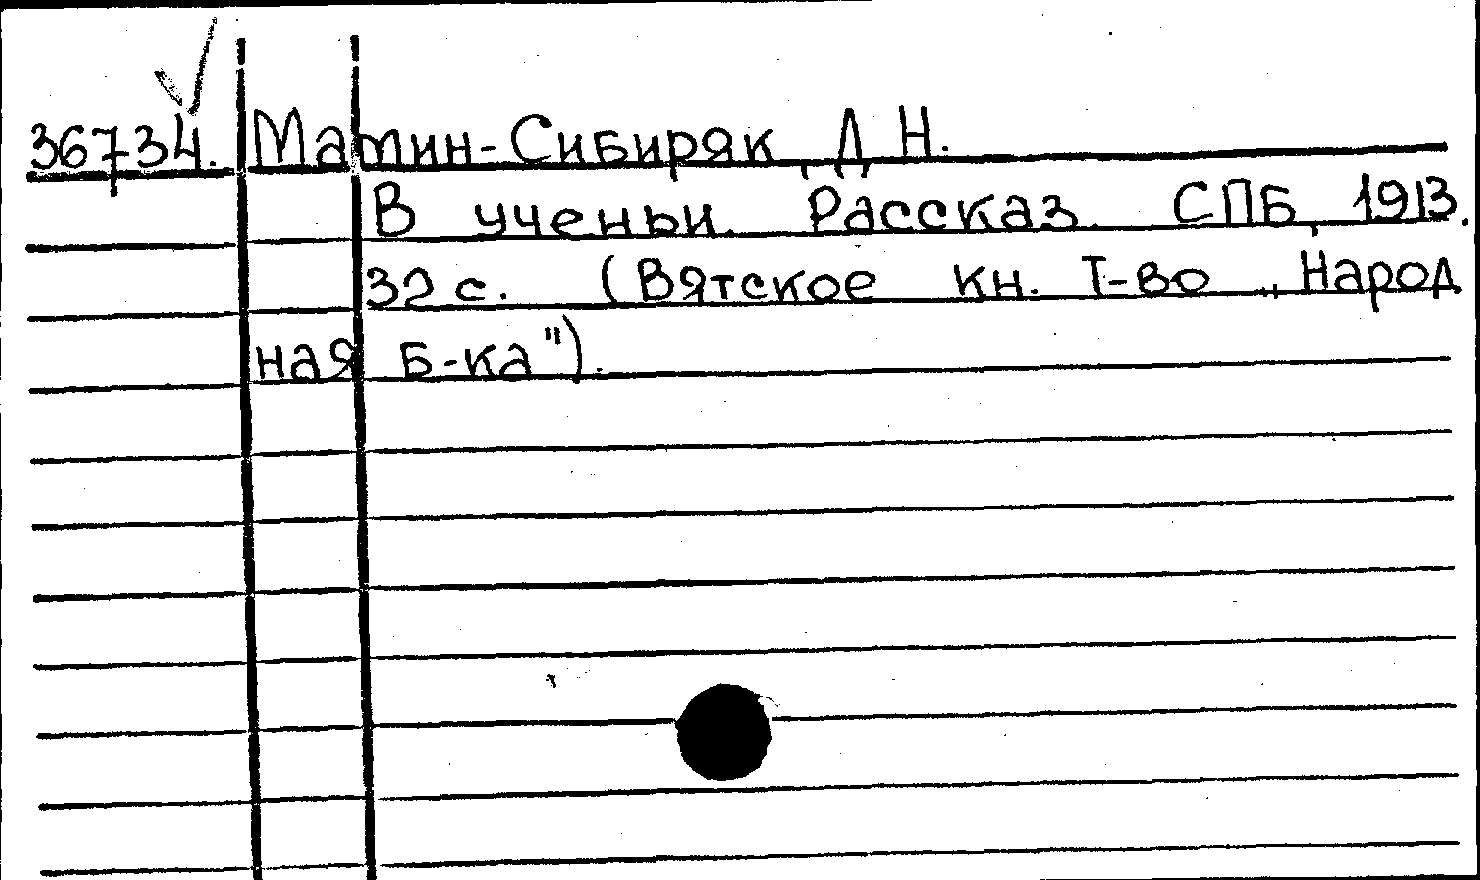 36734. Мамин-Сибиряк, Д. Н.
В ученьи. Рассказ. СПБ, 1913.
32 с. (Вятское кн. Т-во „Народ
ная Б-ка").